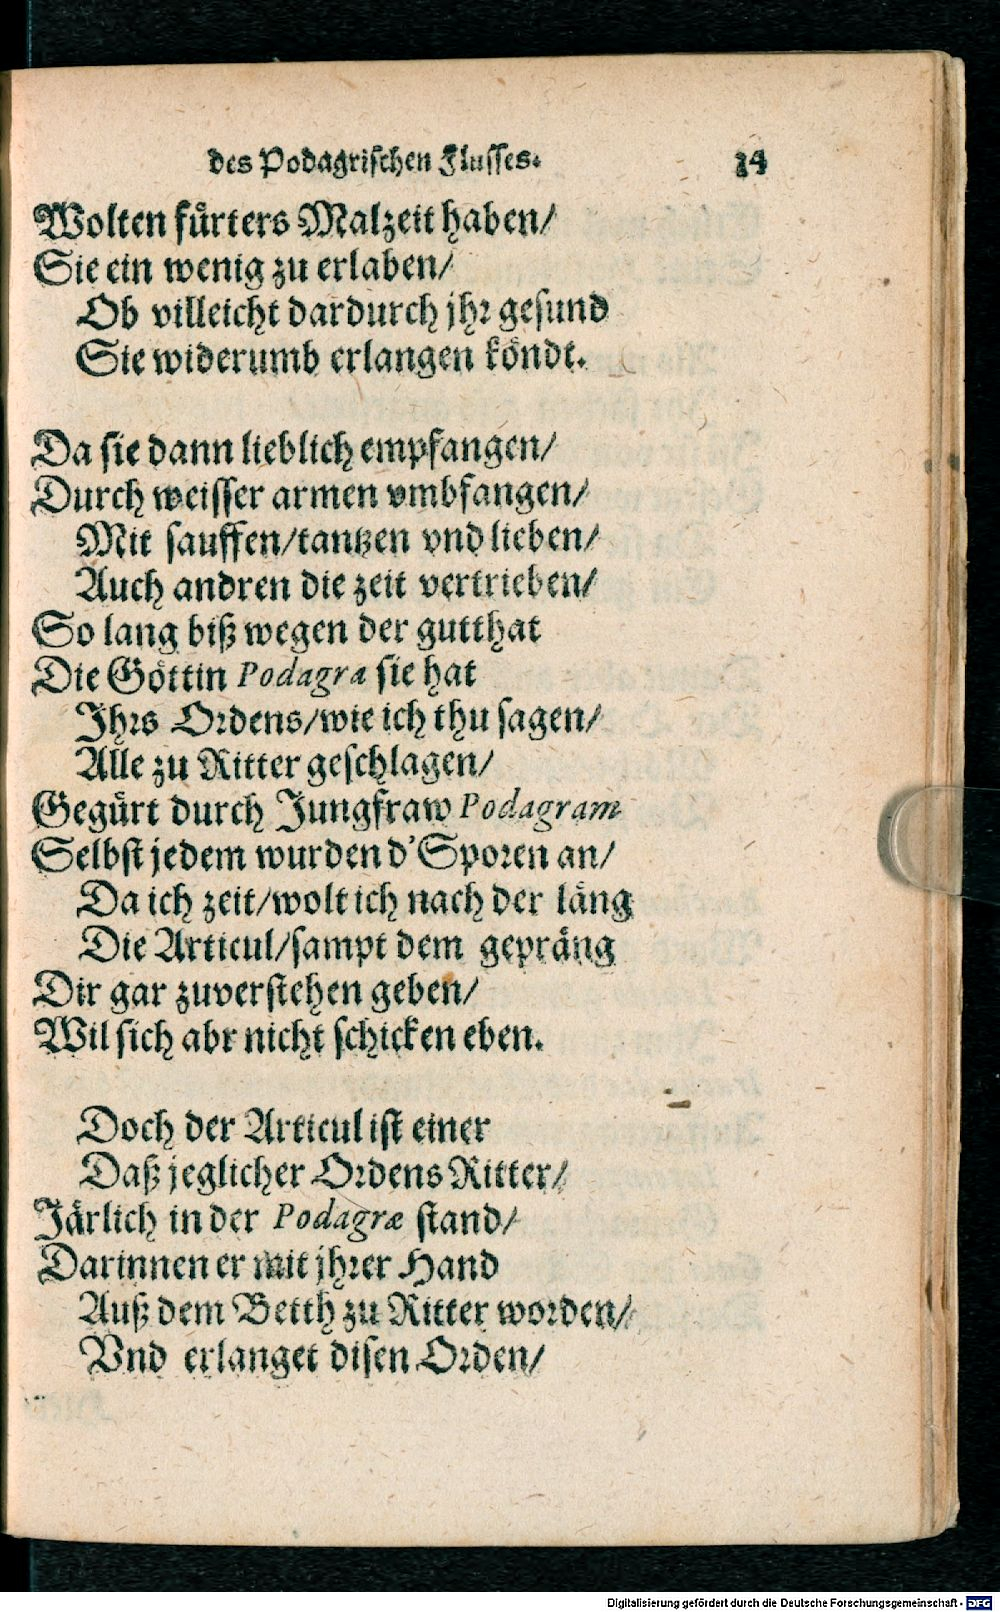 des Podagrischen Flusses. 14
Wolten fürters Malzeit haben/
Sie ein wenig zu erlaben/
Ob villeicht dardurch jhr gesund
Sie widerumb erlangen köndt.
Da sie dann lieblich empfangen/
Durch weisser armen vmbfangen/
Mit sauffen/tantzen vnd lieben/
Auch andren die zeit vertrieben/
So lang biß wegen der gutthat
Die Göttin Podagra sie hat
Jhrs Ordens/wie ich thu sagen/
Alle zu Ritter geschlagen/
Gegürt durch Jungfraw Podagram
Selbst jedem wurden d'Sporen an/
Da ich zeit/wolt ich nach der läng
Die Articul/sampt dem gepräng
Dir gar zuverstehen geben/
Wil sich abr nicht schicken eben.
Doch der Articul ist einer
Daß jeglicher Ordens Ritter/
Järlich in der Podagræ stand/
Darinnen er mit jhrer Hand
Auß dem Betth zu Ritter worden/
Vnd erlanget disen Orden/
Digitalisierung gefördert durch die Deutsche Forschungsgemeinschaft - DFG